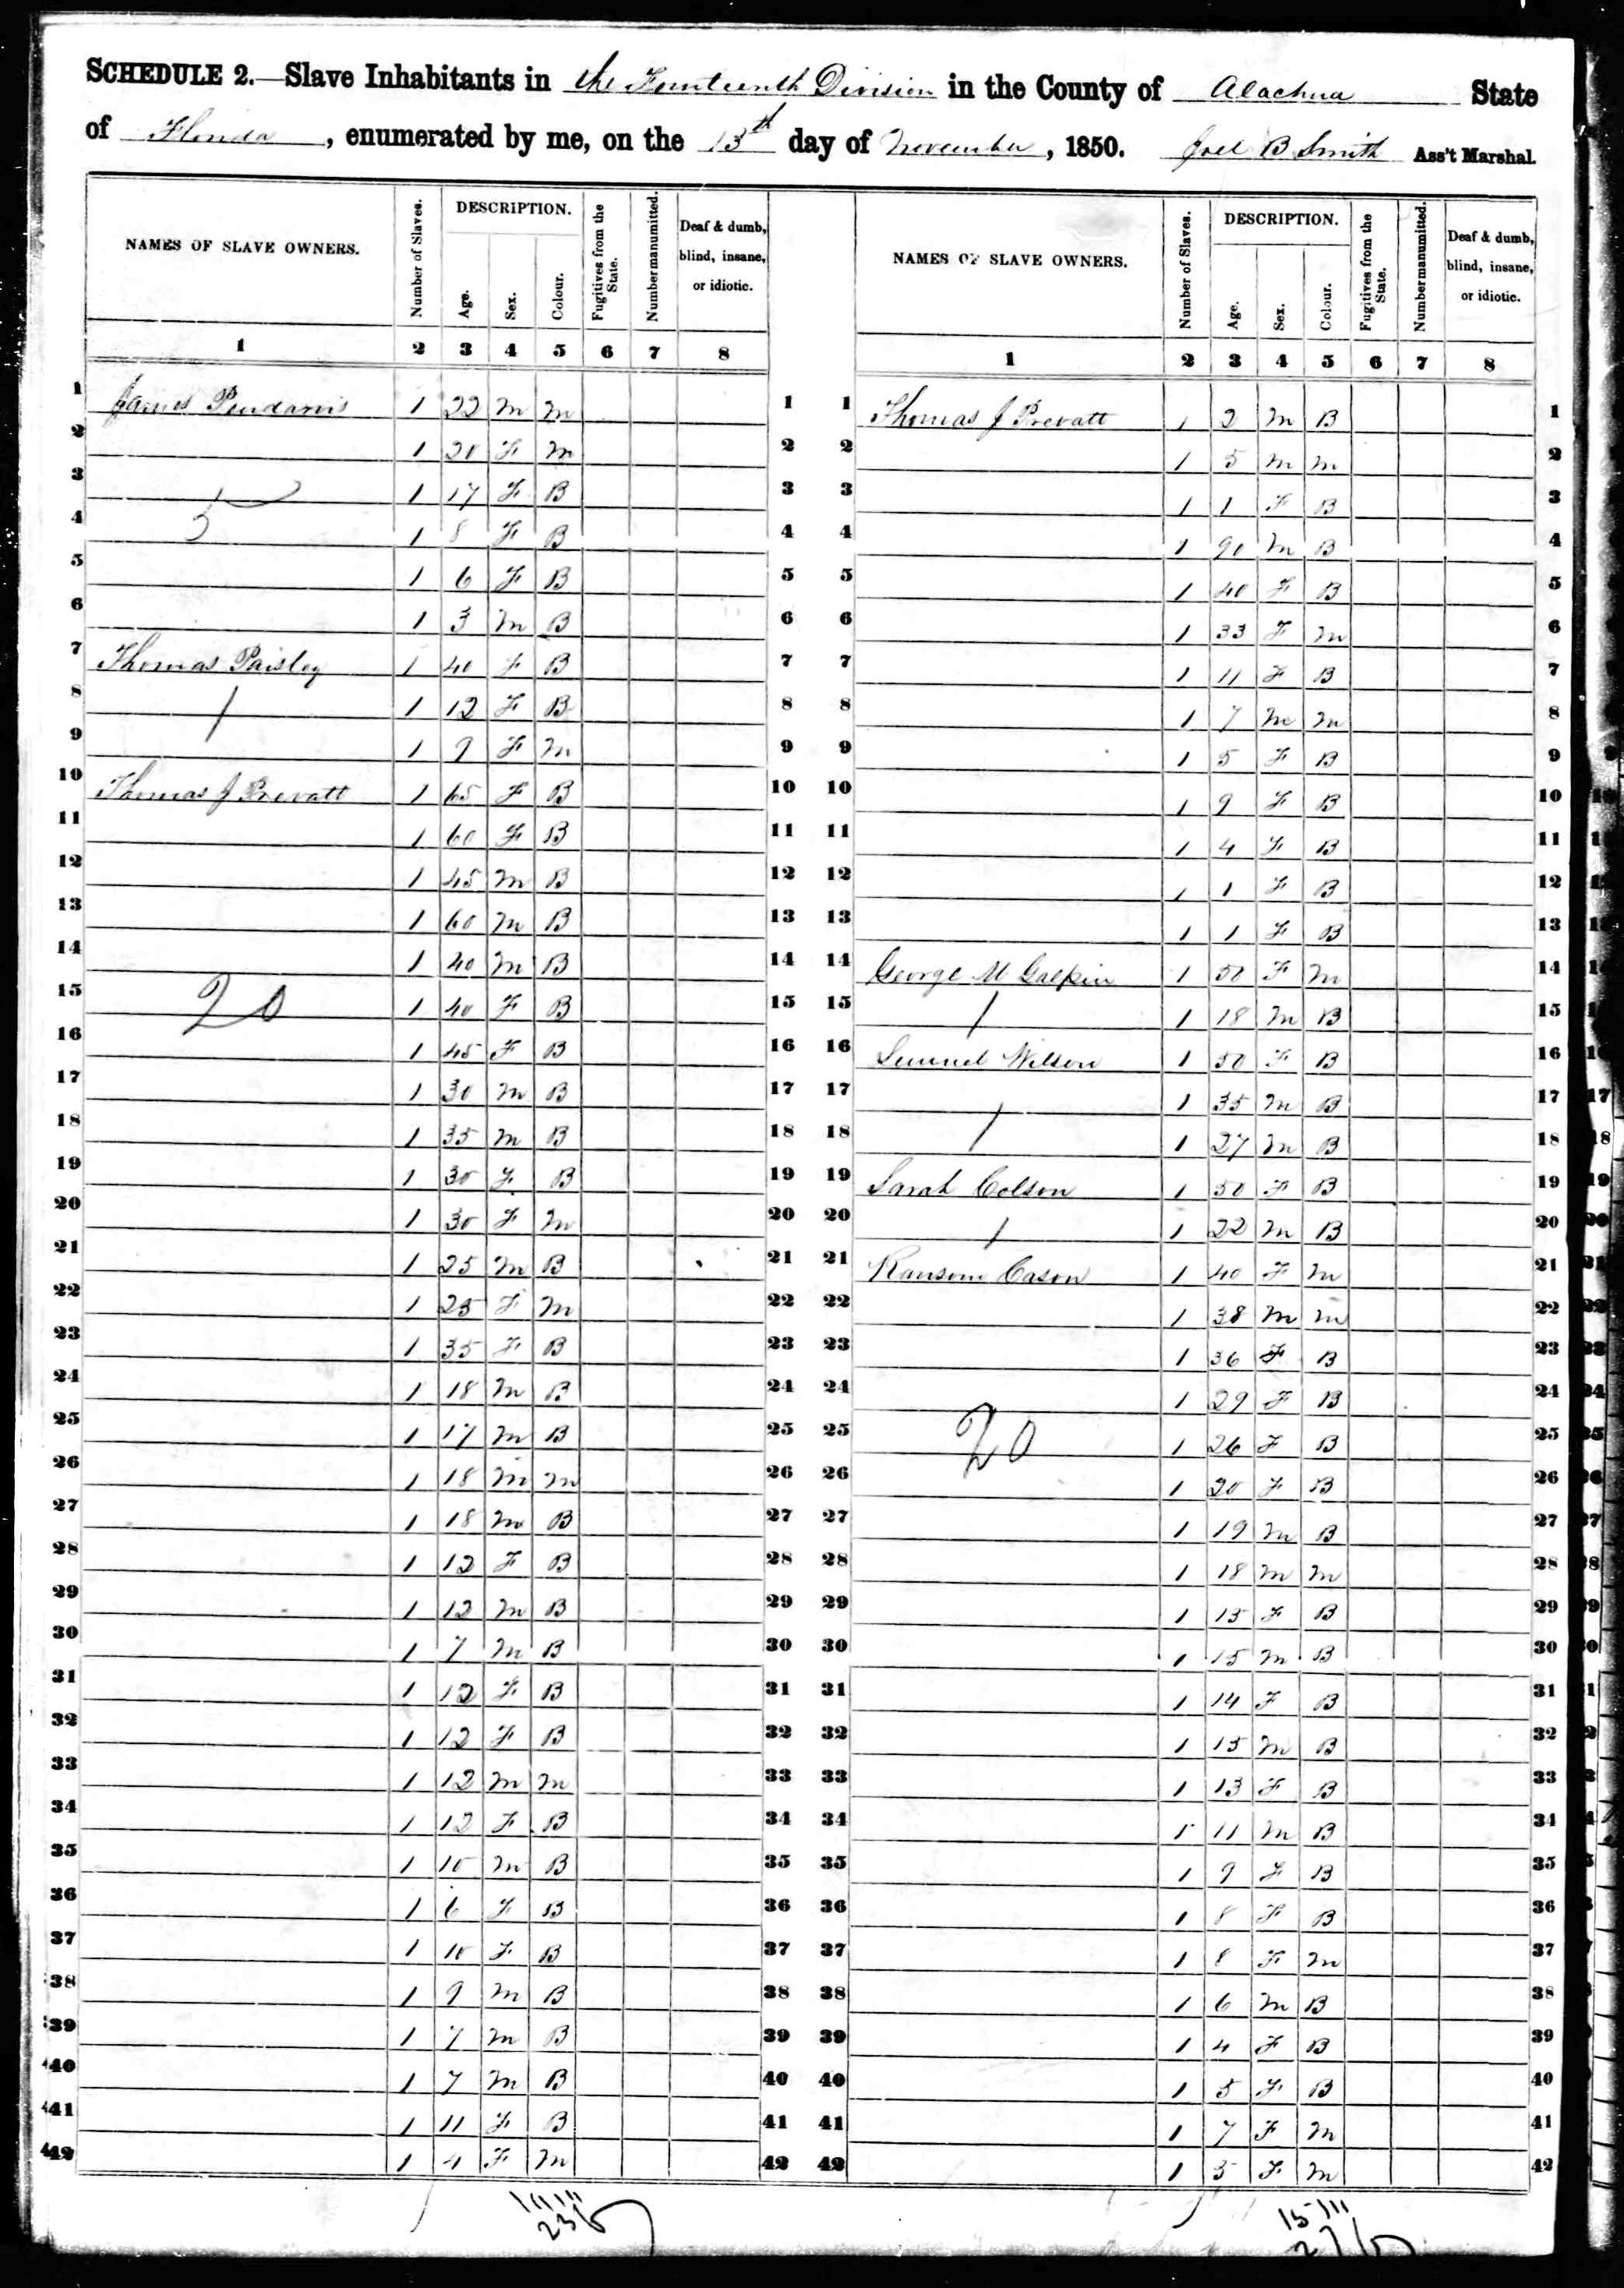 SCHEDULE 2.—Slave Inhabitants in the Fourteenth Division in the County of Alachua State
of Florida, enumerated by me, on the 13th day of November, 1850. Joel B Smith Ass't Marshal.
NAMES OF SLAVE OWNERS. Number of Slaves. DESCRIPTION. Age. Sex. Colour. Fugitives from the State. Number manumitted. Deaf & dumb, blind, insane, or idiotic. NAMES OF SLAVE OWNERS. Number of Slaves. DESCRIPTION. Age. Sex. Colour. Fugitives from the State. Number manumitted. Deaf & dumb, blind, insane, or idiotic.
1 2 3 4 5 6 7 8 1 2 3 4 5 6 7 8
1 James Pendarvis 1 22 m m 1 1 Thomas J Prevatt 1 2 m B 1
2 1 20 F m 2 2 1 5 m m 2
3 1 17 F B 3 3 1 1 F B 3
4 5 1 8 F B 4 4 1 90 m B 4
5 1 6 F B 5 5 1 40 F B 5
6 1 3 m B 6 6 1 33 F m 6
7 Thomas Paisley 1 40 F B 7 7 1 11 F B 7
8 1 12 F B 8 8 1 7 m m 8
9 1 9 F m 9 9 1 5 F B 9
10 Thomas J Prevatt 1 65 F B 10 10 1 9 F B 10
11 1 60 F B 11 11 1 4 F B 11
12 1 45 m B 12 12 1 1 F B 12
13 1 60 m B 13 13 1 1 F B 13
14 1 40 m B 14 14 George M Galpin 1 50 F m 14
15 20 1 40 F B 15 15 1 18 m B 15
16 1 45 F B 16 16 Lemuel Wilson 1 50 F B 16
17 1 30 m B 17 17 1 35 m B 17
18 1 35 m B 18 18 1 27 m B 18
19 1 30 F B 19 19 Sarah Colson 1 50 F B 19
20 1 30 F m 20 20 1 22 m B 20
21 1 25 m B 21 21 Ransom Cason 1 40 F m 21
22 1 25 F m 22 22 1 38 m m 22
23 1 35 F B 23 23 1 36 F B 23
24 1 18 m B 24 24 1 29 F B 24
25 1 17 m B 25 25 20 1 26 F B 25
26 1 18 m m 26 26 1 20 F B 26
27 1 18 m B 27 27 1 19 m B 27
28 1 12 F B 28 28 1 18 m m 28
29 1 12 m B 29 29 1 15 F B 29
30 1 7 m B 30 30 1 15 m B 30
31 1 12 F B 31 31 1 14 F B 31
32 1 12 F B 32 32 1 15 m B 32
33 1 12 m m 33 33 1 13 F B 33
34 1 12 F B 34 34 1 11 m B 34
35 1 10 m B 35 35 1 9 F B 35
36 1 6 F B 36 36 1 8 F B 36
37 1 10 F B 37 37 1 8 F m 37
38 1 9 m B 38 38 1 6 m B 38
39 1 7 m B 39 39 1 4 F B 39
40 1 7 m B 40 40 1 5 F B 40
41 1 11 F B 41 41 1 7 F m 41
42 1 4 F m 42 42 1 5 F m 42